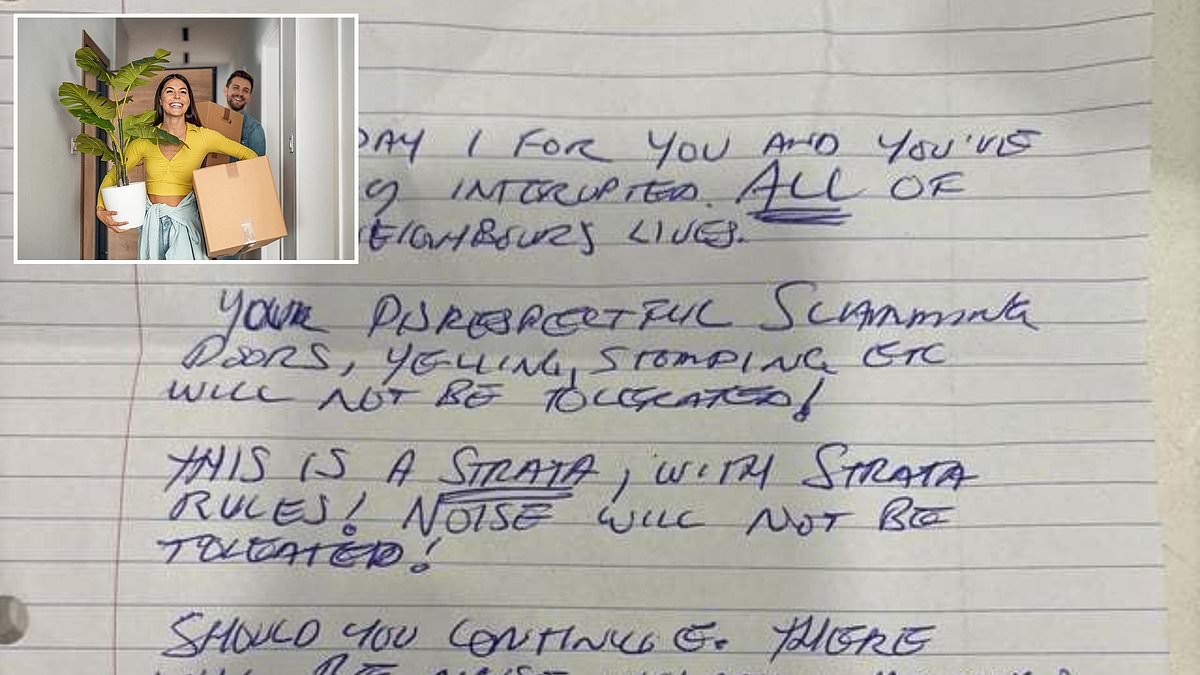 DAY 1 FOR YOU AND YOU'VE
INTERUPTED. ALL OF
NEIGHBOURS LIVES.
YOUR DISRESPECTFUL SLAMMING
DOORS, YELLING, STOMPING ETC
WILL NOT BE TOLERATED!
THIS IS A STRATA, WITH STRATA
RULES! NOISE WILL NOT BE
TOLEATED!
SHOULD YOU CONTINUE. THERE
BE